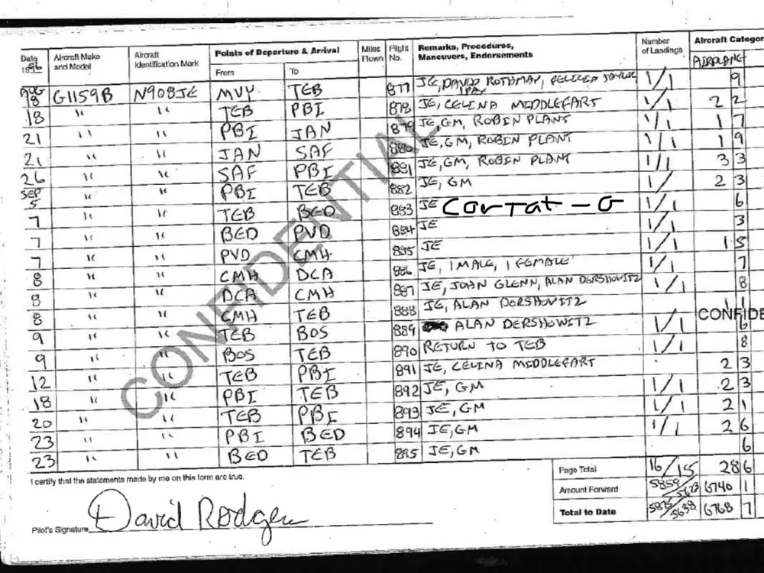 Date 1986 Aircraft Make and Model Aircraft Identification Mark Points of Departure & Arrival From To Miles Flown Flight No. Remarks, Procedures, Maneuvers, Endorsements Number of Landings Aircraft Categor AIRPLANE
AUG 18 G1159B N908JE MVY TEB 877 JE, DAVID ROTHMAN, 1/1 9
18 " " TEB PBI 878 JE, CELINA MIDDLEFART 1/1 2 2
21 " " PBI JAN 879 JE, GM, ROBIN PLANT 1/1 1 7
21 " " JAN SAF 880 JE, GM, ROBIN PLANT 1/1 1 9
26 " " SAF PBI 881 JE, GM, ROBIN PLANT 1/1 3 3
SEP 5 " " PBI TEB 882 JE, GM 1/ 2 3
7 " " TEB BED 883 JE Cortat - G 1/1 6
7 " " BED PVD 884 JE 1/ 3
7 " " PVD CMH 885 JE 1/1 1 5
8 " " CMH DCA 886 JE, 1 MALE, 1 FEMALE 1/1 7
8 " " DCA CMH 887 JE, JOHN GLENN, ALAN DERSHOWITZ 1/1 8
8 " " CMH TEB 888 JE, ALAN DORSHOVITZ 1
9 " " TEB BOS 889 ALAN DERSHOWITZ 1/1 6
9 " " BOS TEB 890 RETURN TO TEB 1/1 8
12 " " TEB PBI 891 JE, CELINA MIDDLEFART 2 3
18 " " PBI TEB 892 JE, GM 1/1 2 3
20 " " TEB PBI 893 JE, GM 1/1 2 1
23 " " PBI BED 894 JE, GM 1/1 2 6
23 " " BED TEB 885 JE, GM 6
CONFIDENTIAL
CONFIDE
I certify that the statements made by me on this form are true.
Page Total 16/15 28 6
Amount Forward 5859/5623 6740 1
Pilot's Signature David Rodgers
Total to Date 5875/5638 6768 7